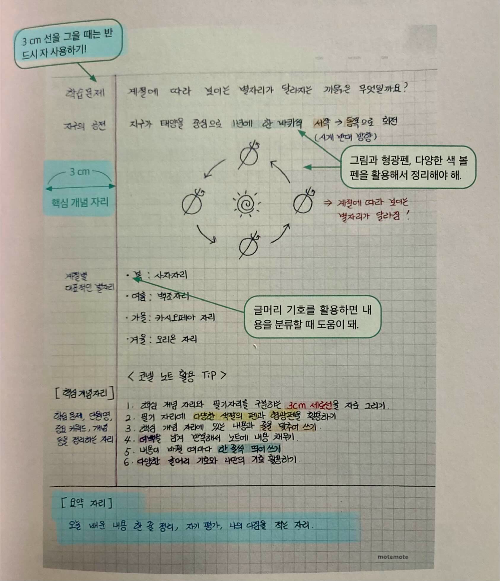 3 cm 선을 그을 때는 반
드시 자 사용하기!
학습 문제 계절에 따라 보이는 별자리가 달라지는 까닭은 무엇일까요?
지구의 공전 지구가 태양을 중심으로 1년에 한 바퀴씩 서쪽 → 동쪽으로 회전
(시계 반대 방향)
그림과 형광펜, 다양한 색 볼
펜을 활용해서 정리해야 해.
3 cm
핵심 개념 자리
⇒ 계절에 따라 보이는
별자리가 달라짐!
계절별
대표적인 별자리
• 봄 : 사자자리
• 여름 : 백조자리
• 가을 : 카시오페아 자리
• 겨울 : 오리온 자리
글머리 기호를 활용하면 내
용을 분류할 때 도움이 돼.
< 코넬 노트 활용 TIP >
[핵심 개념 자리]
학습 문제, 단원명,
중요 키워드, 개념
등을 정리하는 자리
1. 핵심 개념 자리와 필기자리를 구분하는 3cm 세로선을 자로 그리기.
2. 필기 자리에 다양한 색깔의 펜과 형광펜을 활용하기
3. 핵심 개념 자리에 있는 내용과 줄을 맞추어 쓰기
4. 여백을 남겨 반복해서 노트에 내용 채우기.
5. 내용이 바뀔 때마다 한 줄씩 띄어 쓰기
6. 다양한 글머리 기호와 나만의 기호 활용하기
[요약 자리]
오늘 배운 내용 한 줄 정리, 자기 평가, 나의 다짐을 적는 자리.
motemote